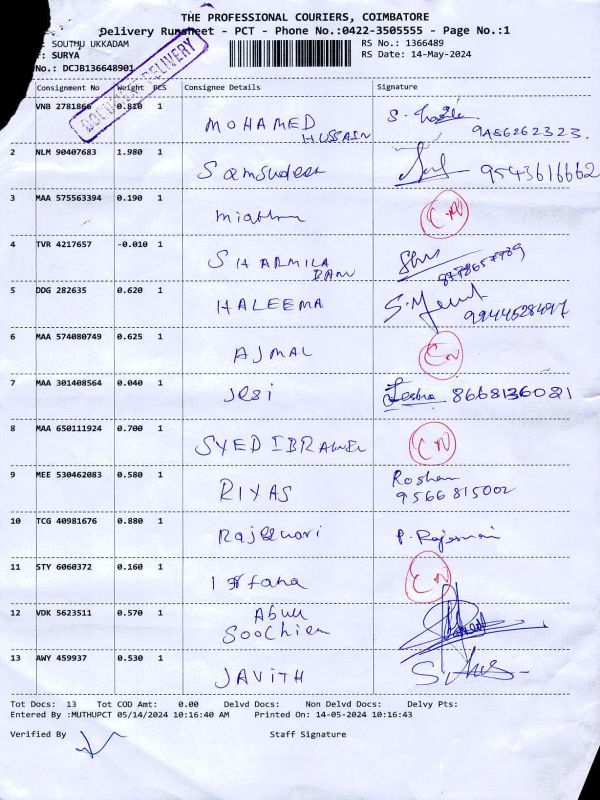 THE PROFESSIONAL COURIERS, COIMBATORE
Delivery Runsheet - PCT - Phone No.:0422-3505555 - Page No.:1
: SOUTHU UKKADAM RS No.: 1366489
: SURYA RS Date: 14-May-2024
No.: DCJB136648901
DELIVERY
Consignment No Weight PCS Consignee Details Signature
VNB 2781866 0.810 1 MOHAMED HUSSAIN 9486262323.
2 NLM 90407683 1.980 1 Samsudeen 9543616662
3 MAA 575563394 0.190 1 CN
4 TVR 4217657 -0.010 1 SHARMILA BANU
5 DDG 282635 0.620 1 HALEEMA
6 MAA 574080749 0.625 1 AJMAL CN
7 MAA 301408564 0.040 1 Jesi 8668136021
8 MAA 650111924 0.700 1 SYED CN
9 MEE 530462083 0.580 1 RIYAS Roshan 9566815002
10 TCG 40981676 0.880 1 P.
11 STY 6060372 0.160 1 CN
12 VDK 5623511 0.570 1
13 AWY 459937 0.530 1 JAVITH
Tot Docs: 13 Tot COD Amt: 0.00 Delvd Docs: Non Delvd Docs: Delvy Pts:
Entered By :MUTHUPCT 05/14/2024 10:16:40 AM Printed On: 14-05-2024 10:16:43
Verified By Staff Signature